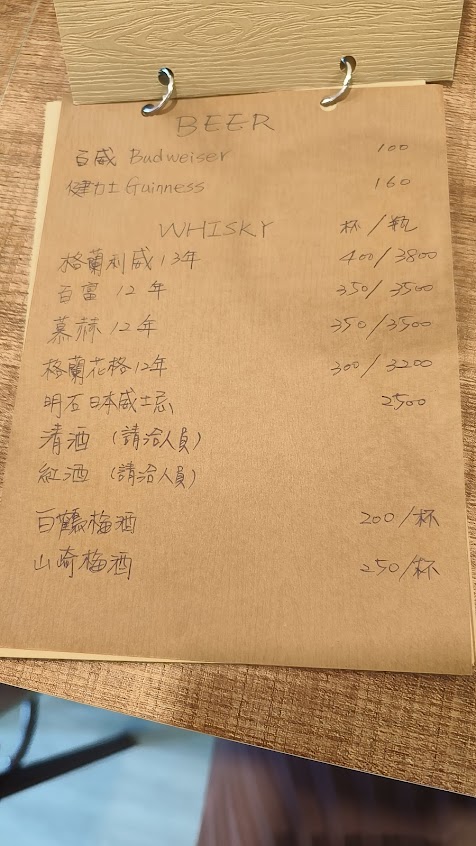 BEER
百威 Budweiser 100
健力士 Guinness 160
WHISKY 杯/瓶
格蘭利威 13年 400/3800
百富 12年 350/3500
慕赫 12年 350/3500
格蘭花格12年 300/3200
明石日本威士忌 2500
清酒 (請洽人員)
紅酒 (請洽人員)
白鶴梅酒 200/杯
山崎梅酒 250/杯